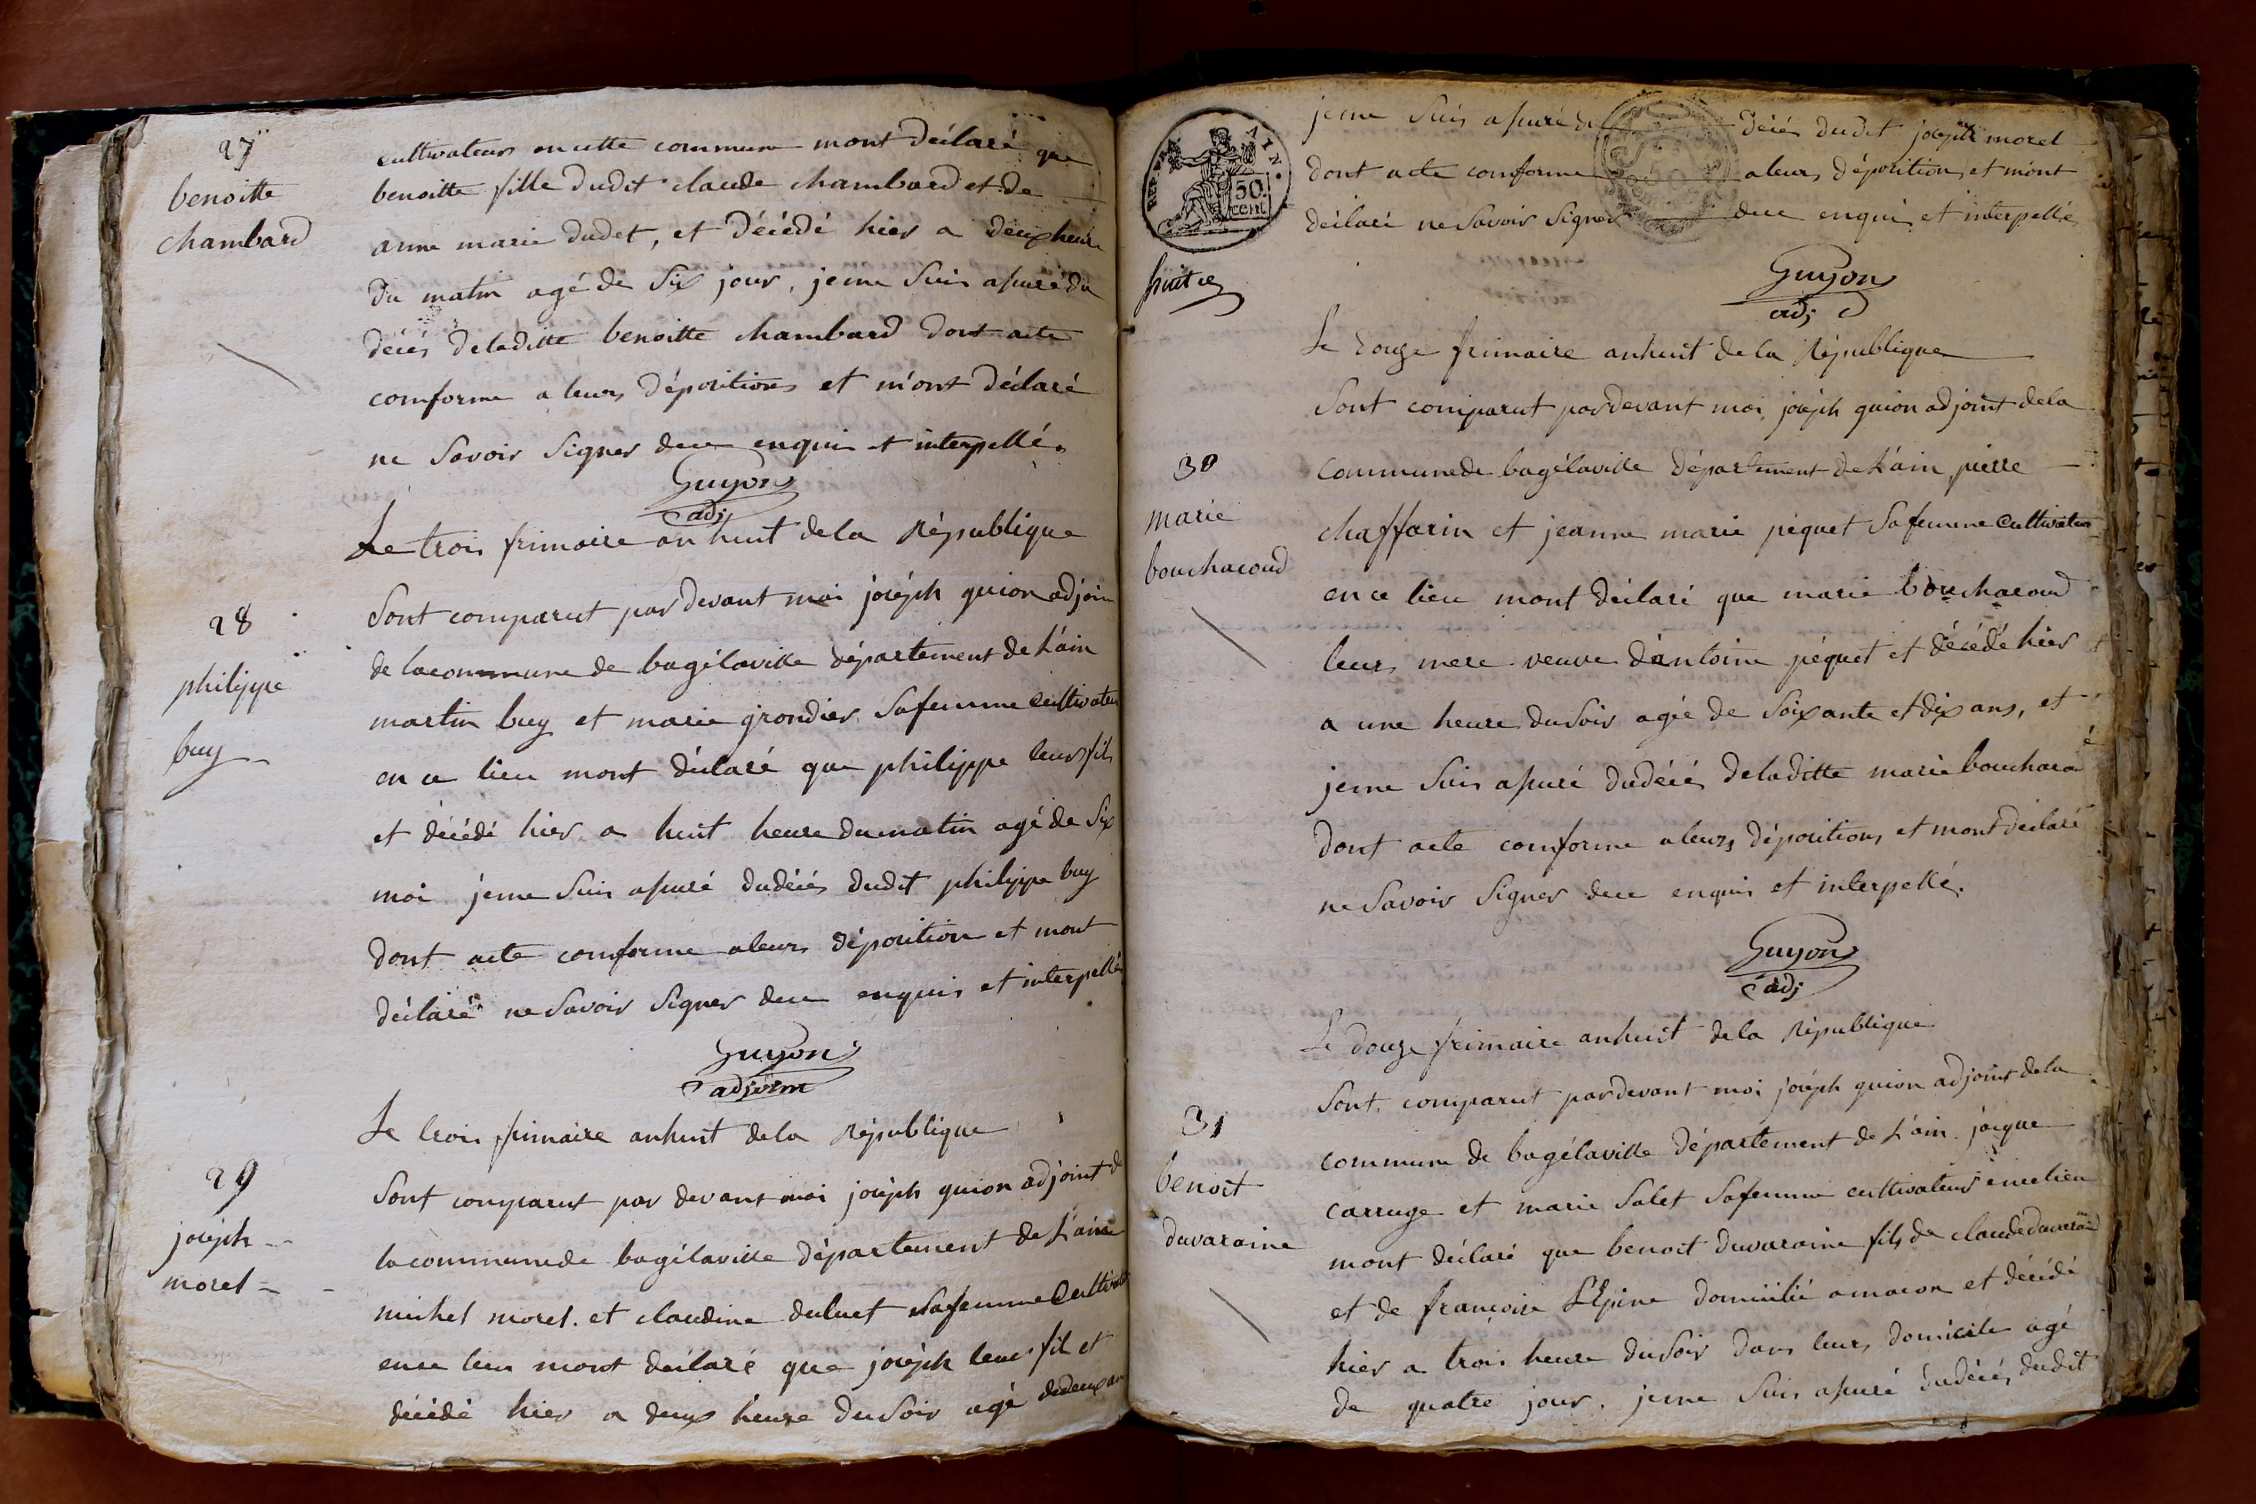 27
benoitte
chambard
cultivateurs en cette commune mont déclaré que
benoitte fille dudit claude chambard et de
anne marie dudet, et décédé hier a deux heure
du matin agé de Six jour, jeme Suis assuré du
décés deladitte benoitte chambard dont acte
comforme a leurs dépositions et m'ont déclaré
ne Savoir Signer dece enquis et interpellé.
Guyon
adj
Le trois frimaire an huit dela République
28
philippe
buy
Sont comparut par devant moi joséph guion adjoin
de lacommune de bagélaville département de L'ain
martin buy et marie grondier Safemme Cultivateur
en ce lieu mont déclaré que philippe leur fils
et décédé hier a huit heure dumatin agé de Six
moi jeme Suis assuré dudécés dudit philippe buy
dont acte comforme aleurs déposition et mont
déclaré ne Savoir Signer dece enquis et interpellé
Guyon
adjoint
Le trois frimaire anhuit dela République
29
joséph
morel
Sont comparut par devant moi joséph guion adjoint de
lacommunede bagélaville département de L'ain
michel morel. et claudine duluct Safemme Cultivat
ence lieu mont déclaré que joséph leur fil et
décédé hier a deux heure duSoir agé dedeux an
50
cent
AIN
jeme Suis assuré du décés dudit joséph morel
dont acte comforme aleurs déposition et mont
déclaré ne Savoir Signer dece enquis et interpellé
Guyon
adj
huit
Le douze frimaire anhuit dela République
Sont comparut pardevant moi joséph guion adjoint dela
30
marie
bouchacoud
communede bagélaville département de L'ain pierre
chaffarin et jeanne marie péquet Safemme Cultivateur
en ce lieu mont déclaré que marie bouchacoud
leurs mere veuve d'antoine péquet et décédé hier
a une heure duSoir agée de Soixante et dix ans, et
jeme Suis assuré dudécés deladitte marie bouchacou
dont acte comforme aleurs dépositions et mont déclaré
ne Savoir Signer dece enquis et interpellé.
Guyon
adj
Le douze frimaire anhuit dela République
Sont comparut pardevant moi joséph guion adjoint dela
31
benoit
duvaraine
commune de bagélaville département de L'ain jacque
carruge et marie Salet Safemme cultivateurs encelieu
mont déclaré que benoit duvaraine fils de claude duvaraine
et de françoise L'Epine domicilié amacon et décédé
hier a trois heure duSoir dans leurs domicile agé
de quatre jour. jeme Suis assuré dudécés dudit